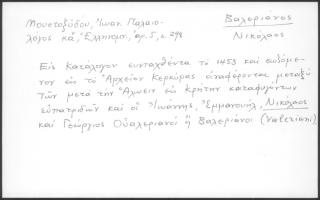 Μουστοξύδου, Ἰωαν. Παλαιο-
λόγος κλ, Ἑλληνομ., ἀρ. 5, σ. 298
Βαλεριάνος
Νικόλαος
Εἰς Κατάλογον συνταχθέντα τὸ 1453 καὶ σωζόμε-
νον εἰς τὸ Ἀρχεῖον Κερκύρας ἀναφέρονται μεταξὺ
τῶν μετὰ τὴν Ἅλωσιν εἰς Κρήτην καταφυγόντων
εὐπατριδῶν καὶ οἱ Ἰωάννης, Ἐμμανουήλ, Νικόλαος
καὶ Γεώργιος Οὐαλεριανοί ἢ Βαλεριάνοι (Valeriani)